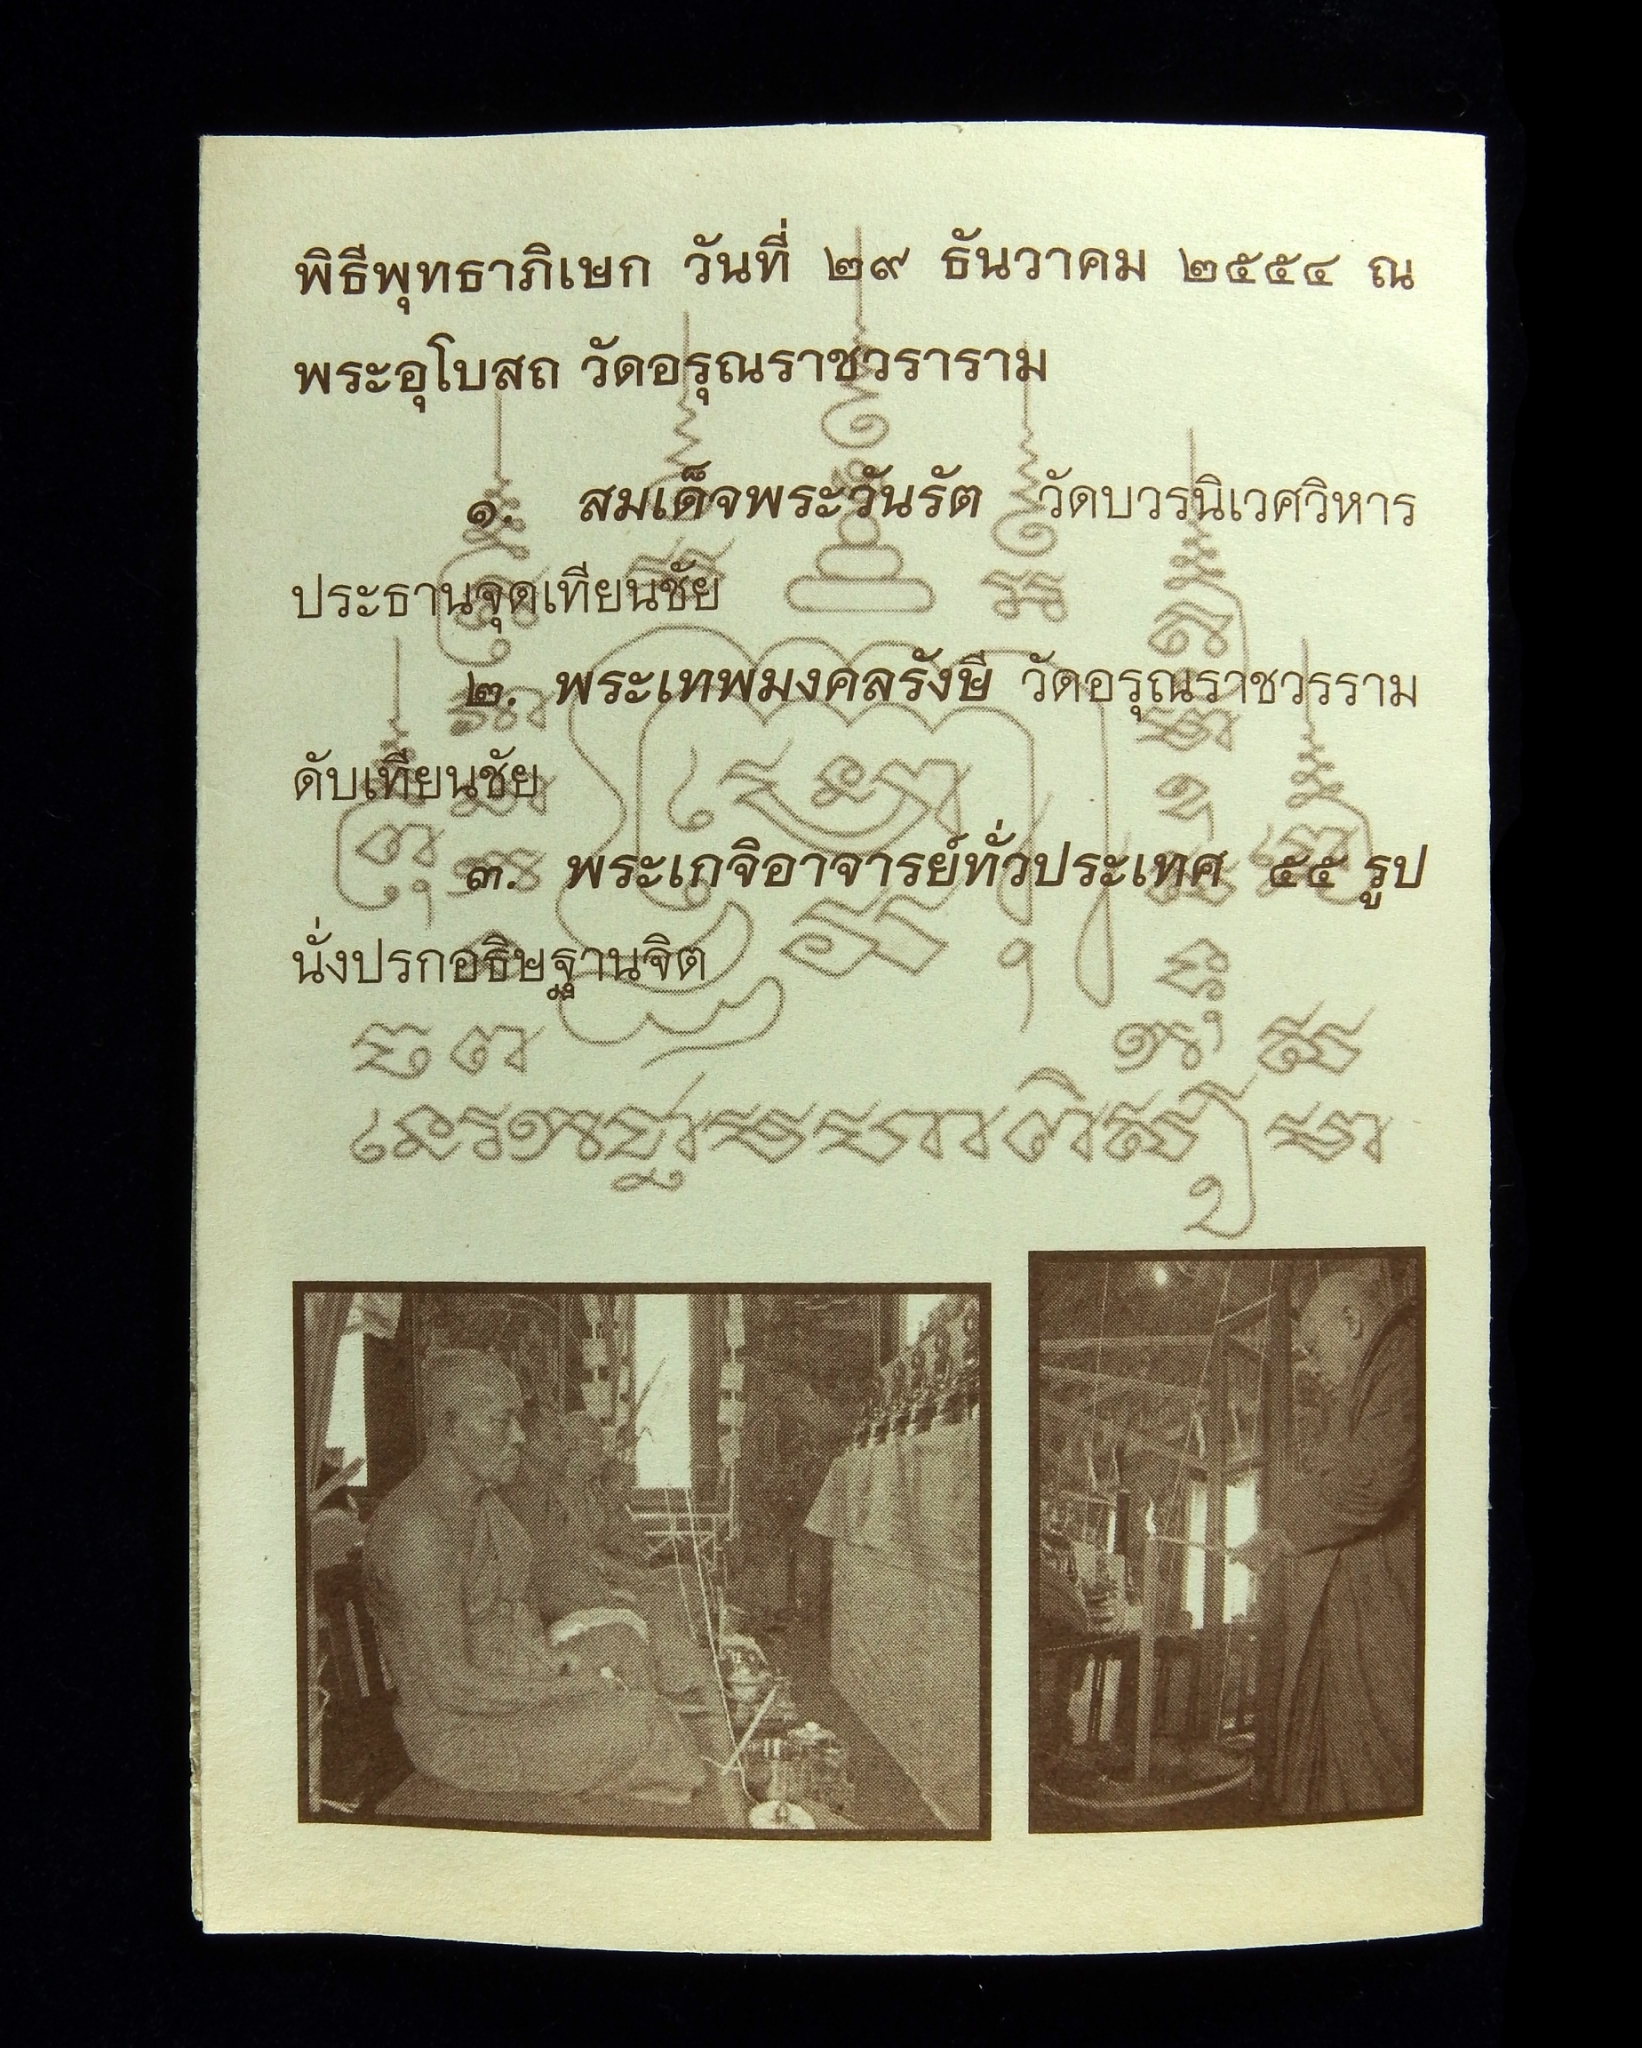 พิธีพุทธาภิเษก วันที่ ๒๙ ธันวาคม ๒๕๕๔ ณ
พระอุโบสถ วัดอรุณราชวราราม
๑. สมเด็จพระวันรัต วัดบวรนิเวศวิหาร
ประธานจุดเทียนชัย
๒. พระเทพมงคลรังษี วัดอรุณราชวรราม
ดับเทียนชัย
๓. พระเกจิอาจารย์ทั่วประเทศ ๕๕ รูป
นั่งปรกอธิษฐานจิต